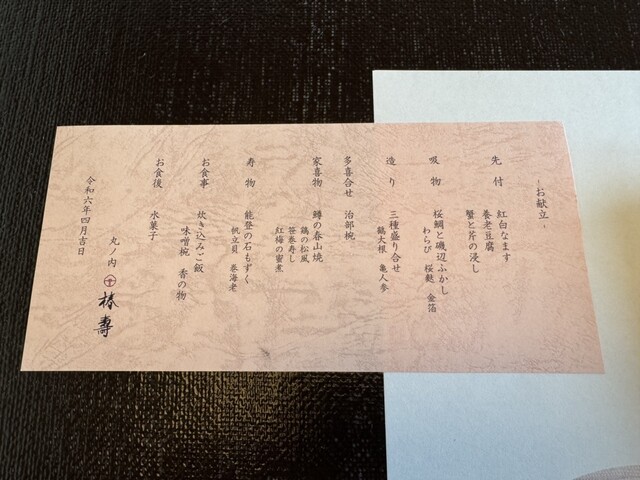 －お献立－
先付　紅白なます
養老豆腐
蟹と芹の浸し
吸物　桜鯛と磯辺ふかし
わらび　桜麩　金箔
造り　三種盛り合せ
鶴大根　亀人参
多喜合せ　治部椀
家喜物　鱒の春山焼
鶏の松風
笹巻寿し
紅梅の蜜煮
寿物　能登の石もずく
帆立貝　巻海老
お食事　炊き込みご飯
味噌椀　香の物
お食後　水菓子
令和六年四月吉日
丸ノ内　椿壽